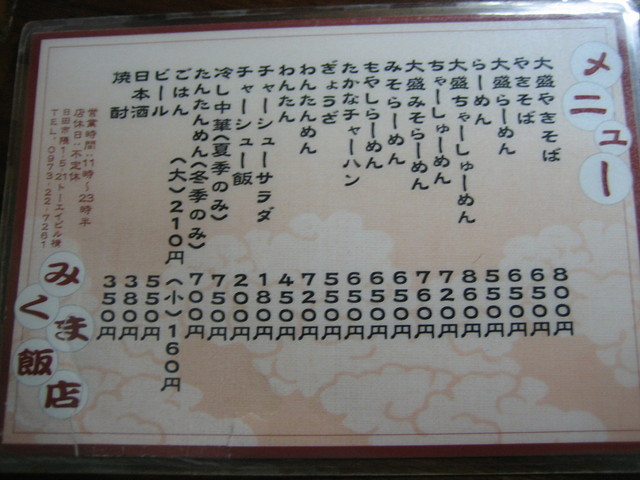 メニュー
大盛やきそば 800円
やきそば 650円
大盛らーめん 650円
らーめん 550円
大盛ちゃーしゅーめん 860円
ちゃーしゅーめん 720円
大盛みそらーめん 760円
みそらーめん 650円
もやしらーめん 650円
たかなチャーハン 650円
ぎょうざ 550円
わんたんめん 720円
わんたん 450円
チャーシューサラダ 180円
チャーシュー飯 200円
冷し中華(夏季のみ) 750円
たんたんめん(冬季のみ) 700円
ごはん (大)210円 (小)160円
ビール 550円
日本酒 380円
焼酎 350円
営業時間:11時〜23時半
店休日:不定休
日田市隈1-5-2トーエイビル横
TEL.0973-22-7261
みくま飯店